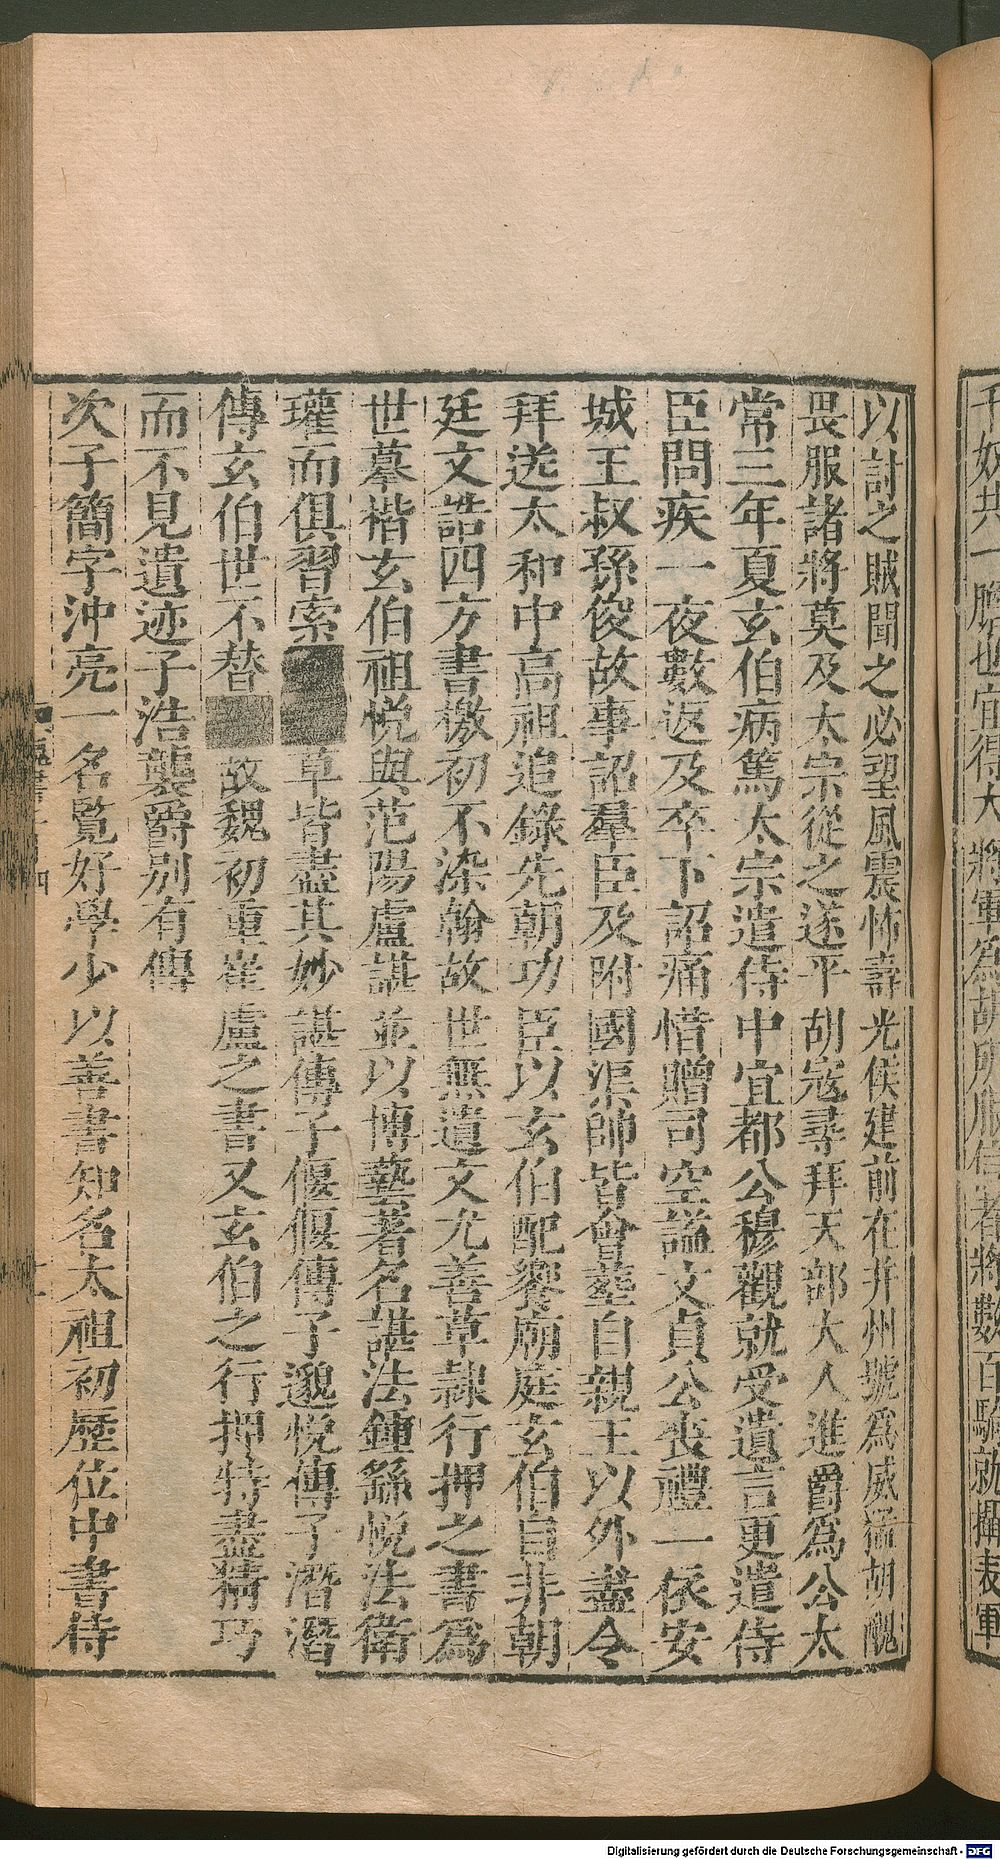 以討之賊聞之必望風震怖壽光侯建前在并州號爲威猛胡醜
畏服諸將莫及太宗從之遂平胡寇尋拜天部大人進爵爲公太
常三年夏玄伯病篤太宗遣侍中宜都公穆觀就受遺言更遣侍
臣問疾一夜數返及卒下詔痛惜贈司空謚文貞公喪禮一依安
城王叔孫俊故事詔羣臣及附國渠帥皆會葬自親王以外盡令
拜送太和中高祖追錄先朝功臣以玄伯配饗廟庭玄伯自非朝
廷文誥四方書檄初不染翰故世無遺文尤善草隸行押之書爲
世摹楷玄伯祖悅與范陽盧諶並以博藝著名諶法鍾繇悅法衞
瓘而俱習索草皆盡其妙諶傳子偃偃傳子邈悅傳子潛潛
傳玄伯世不替故魏初重崔盧之書又玄伯之行押特盡精巧
而不見遺迹子浩襲爵別有傳
次子簡字沖亮一名覽好學少以善書知名太祖初歷位中書侍
千奴共一膽也宜得大將軍為胡所服信者將數百騎就攝表軍
Digitalisierung gefördert durch die Deutsche Forschungsgemeinschaft - DFG